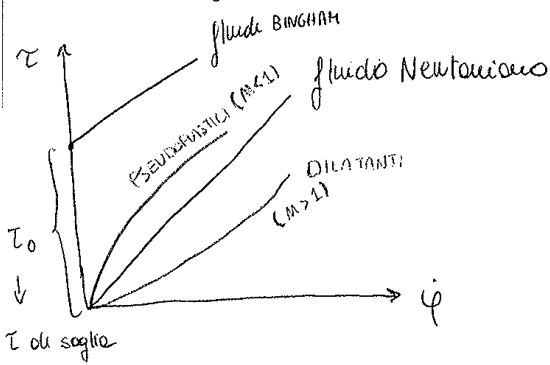 fluidi BINGHAM
τ
fluido Newtoniano
PSEUDOPLASTICI (m<1)
DILATANTI
(m>1)
τ₀
↓
φ̇
τ di soglia